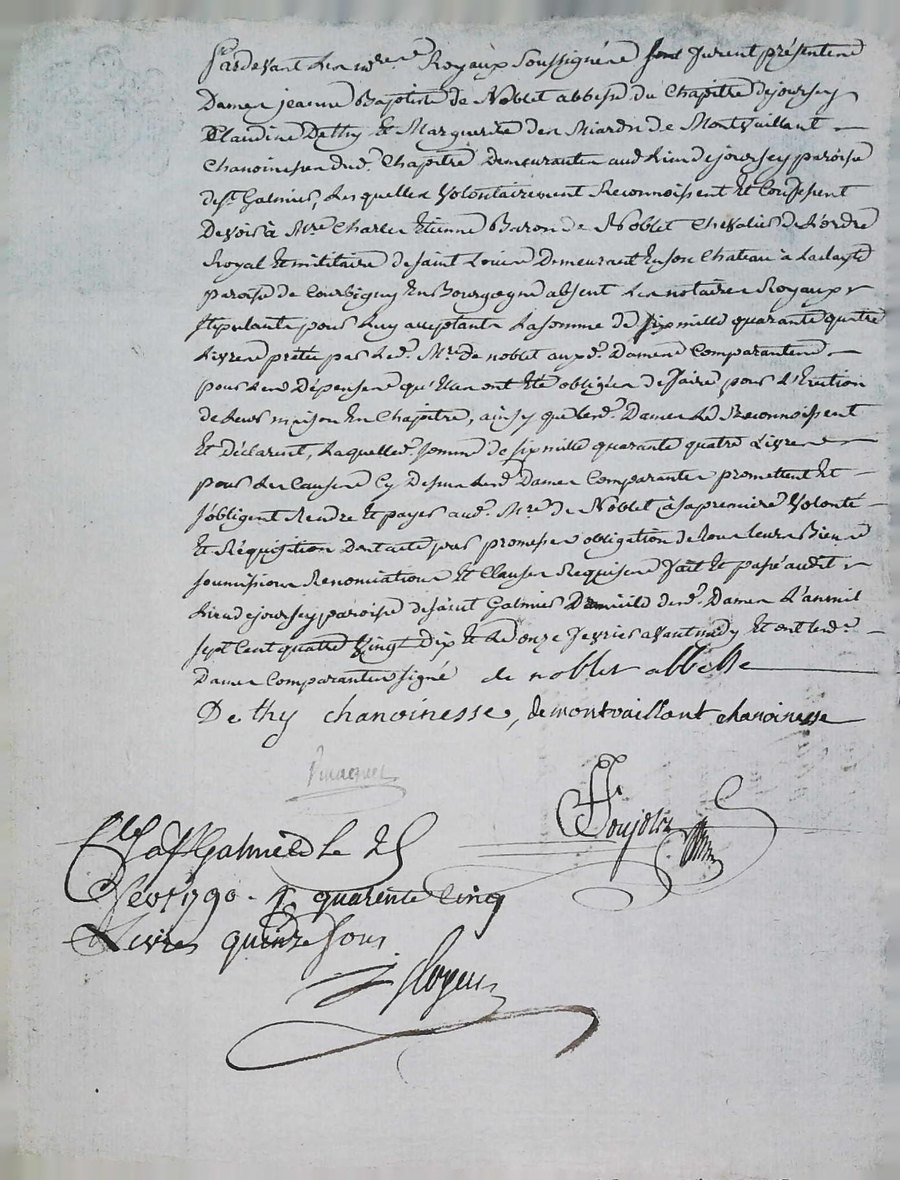 Pardevant Les no.res Royaux Soussignés furent présentes
Dames jeanne Baptiste de Noblet abbesse du Chapitre dejoursey
Claudine Dethy Et Marguerite des Miards de Montvaillant
Chanoinesses dud. Chapitre demeurantes aud. Lieu dejoursey paroisse
de St. Galmier, Lesquelles Volontairement Reconnoissent Et Confessent
Devoir à Mre. Charles Etienne Baron de Noblet Chevalier de L'ordre
Royal Et militaire de saint Louis Demeurant En son Chateau à
paroisse de Courbigny En Bourgogne absent Les notaires Royaux
stipulants pour Luy acceptants La somme de six mille quarante quatre
Livres prétée par Led. Mre. de noblet auxd. Dames Comparantes
pour Les Dépenses qu'Elles ont été obligées de faire pour L'Erection
de Leur maison En Chapitre, ainsy que Lesd. Dames Le Reconnoissent
Et déclarent, Laquelle somme de six mille quarante quatre Livres
pour Les Causes Cy Dessus Lesd. Dames Comparantes promettent Et
s'obligent Rendre Et payer aud. Mre. de Noblet à sa premiere Volonté
Et Réquisition Dont acte par promesses obligation de tous leurs Biens
soumissions Renonciations Et Clauses Requises fait Et passé audit
Lieu dejoursey paroisse de saint Galmier Domicile desd. Dames L'an mil
sept Cent quatre Vingt Dix Et Le onze fevrier avant midy Et ont Lesd.
Dames Comparantes signé de noblet abbesse
De thy chanoinesse, de montvaillant chanoinesse
Cllé à St Galmier le 25
fevr 1790. R quarente Cinq
Livres quinze sous